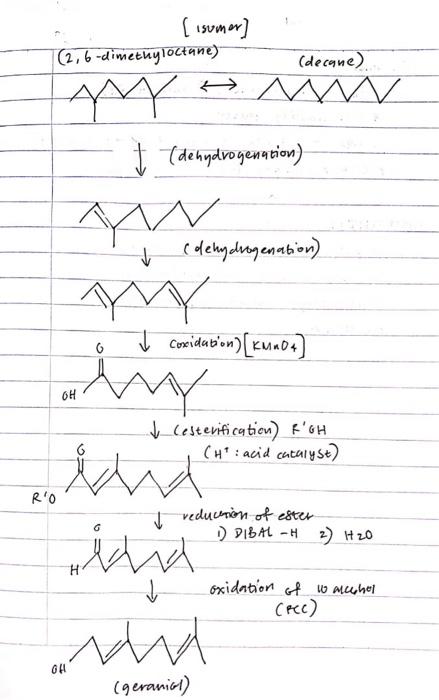 [isumer]
(2, 6-dimethyloctane)
(decane)
(dehydrogenation)
(dehydrogenation)
(oxidation) [KMnO4]
O
OH
(esterification) R'OH
(H⁺ : acid catalyst)
O
R'O
reduction of ester
1) DIBAL -H 2) H2O
O
H
oxidation of 10 alcohol
(PCC)
OH
(geraniol)